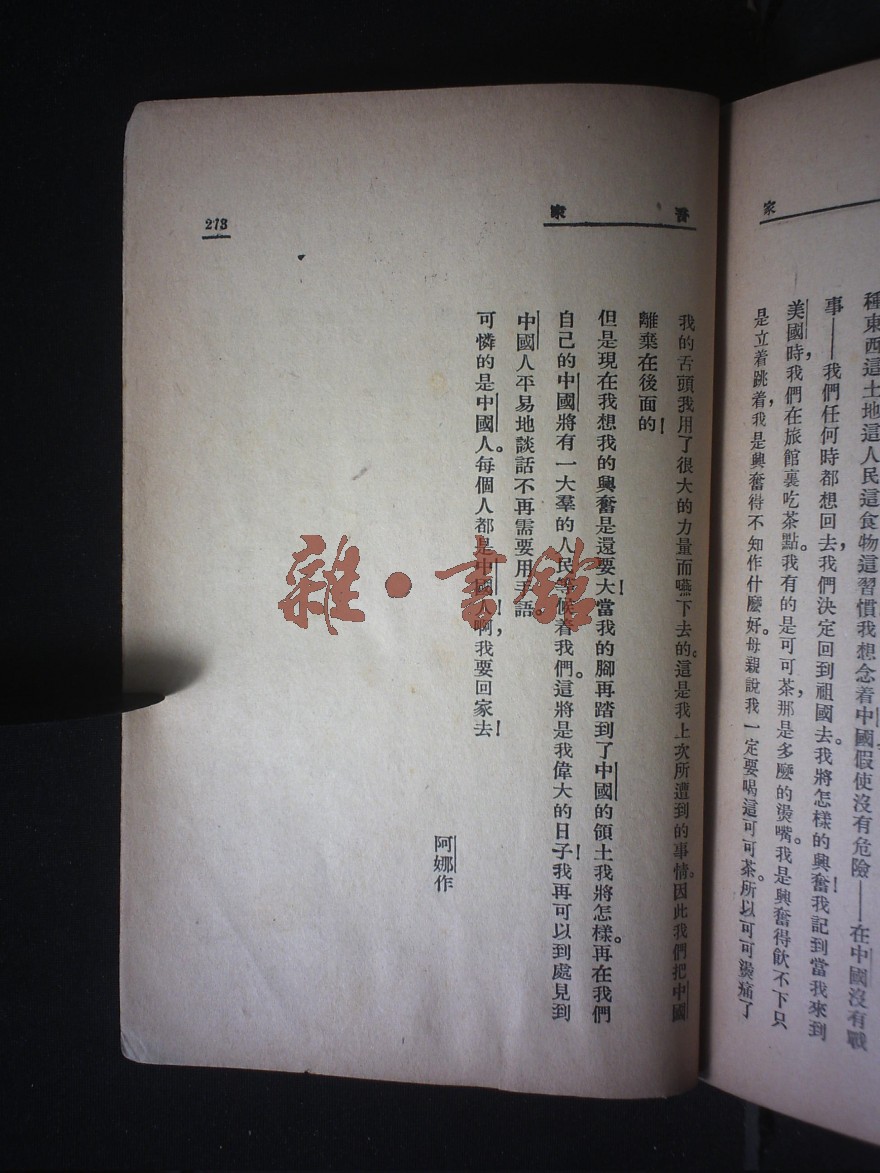 家
種東西這土地這人民這食物這習慣我想念着中國假使沒有危險——在中國沒有戰
事——我們任何時都想回去，我們決定回到祖國去。我將怎樣的興奮！我記到當我來到
美國時，我們在旅館裏吃茶點。我有的是可可茶，那是多麼的燙嘴。我是興奮得飲不下只
是立着跳着，我是興奮得不知作什麼好。母親說我一定要喝這可可茶。所以可可燙痛了
我的舌頭我用了很大的力量而嚥下去的。這是我上次所遭到的事情。因此我們把中國
離棄在後面的！
但是現在我想我的興奮是還要大！當我的腳再踏到了中國的領土我將怎樣。再在我們
自己的中國將有一大羣的人民等候着我們。這將是我偉大的日子！我再可以到處見到
中國人平易地談話不再需要用手語。
可憐的是中國人。每個人都是中國人！啊，我要回家去！
阿娜作
273
雜·書館